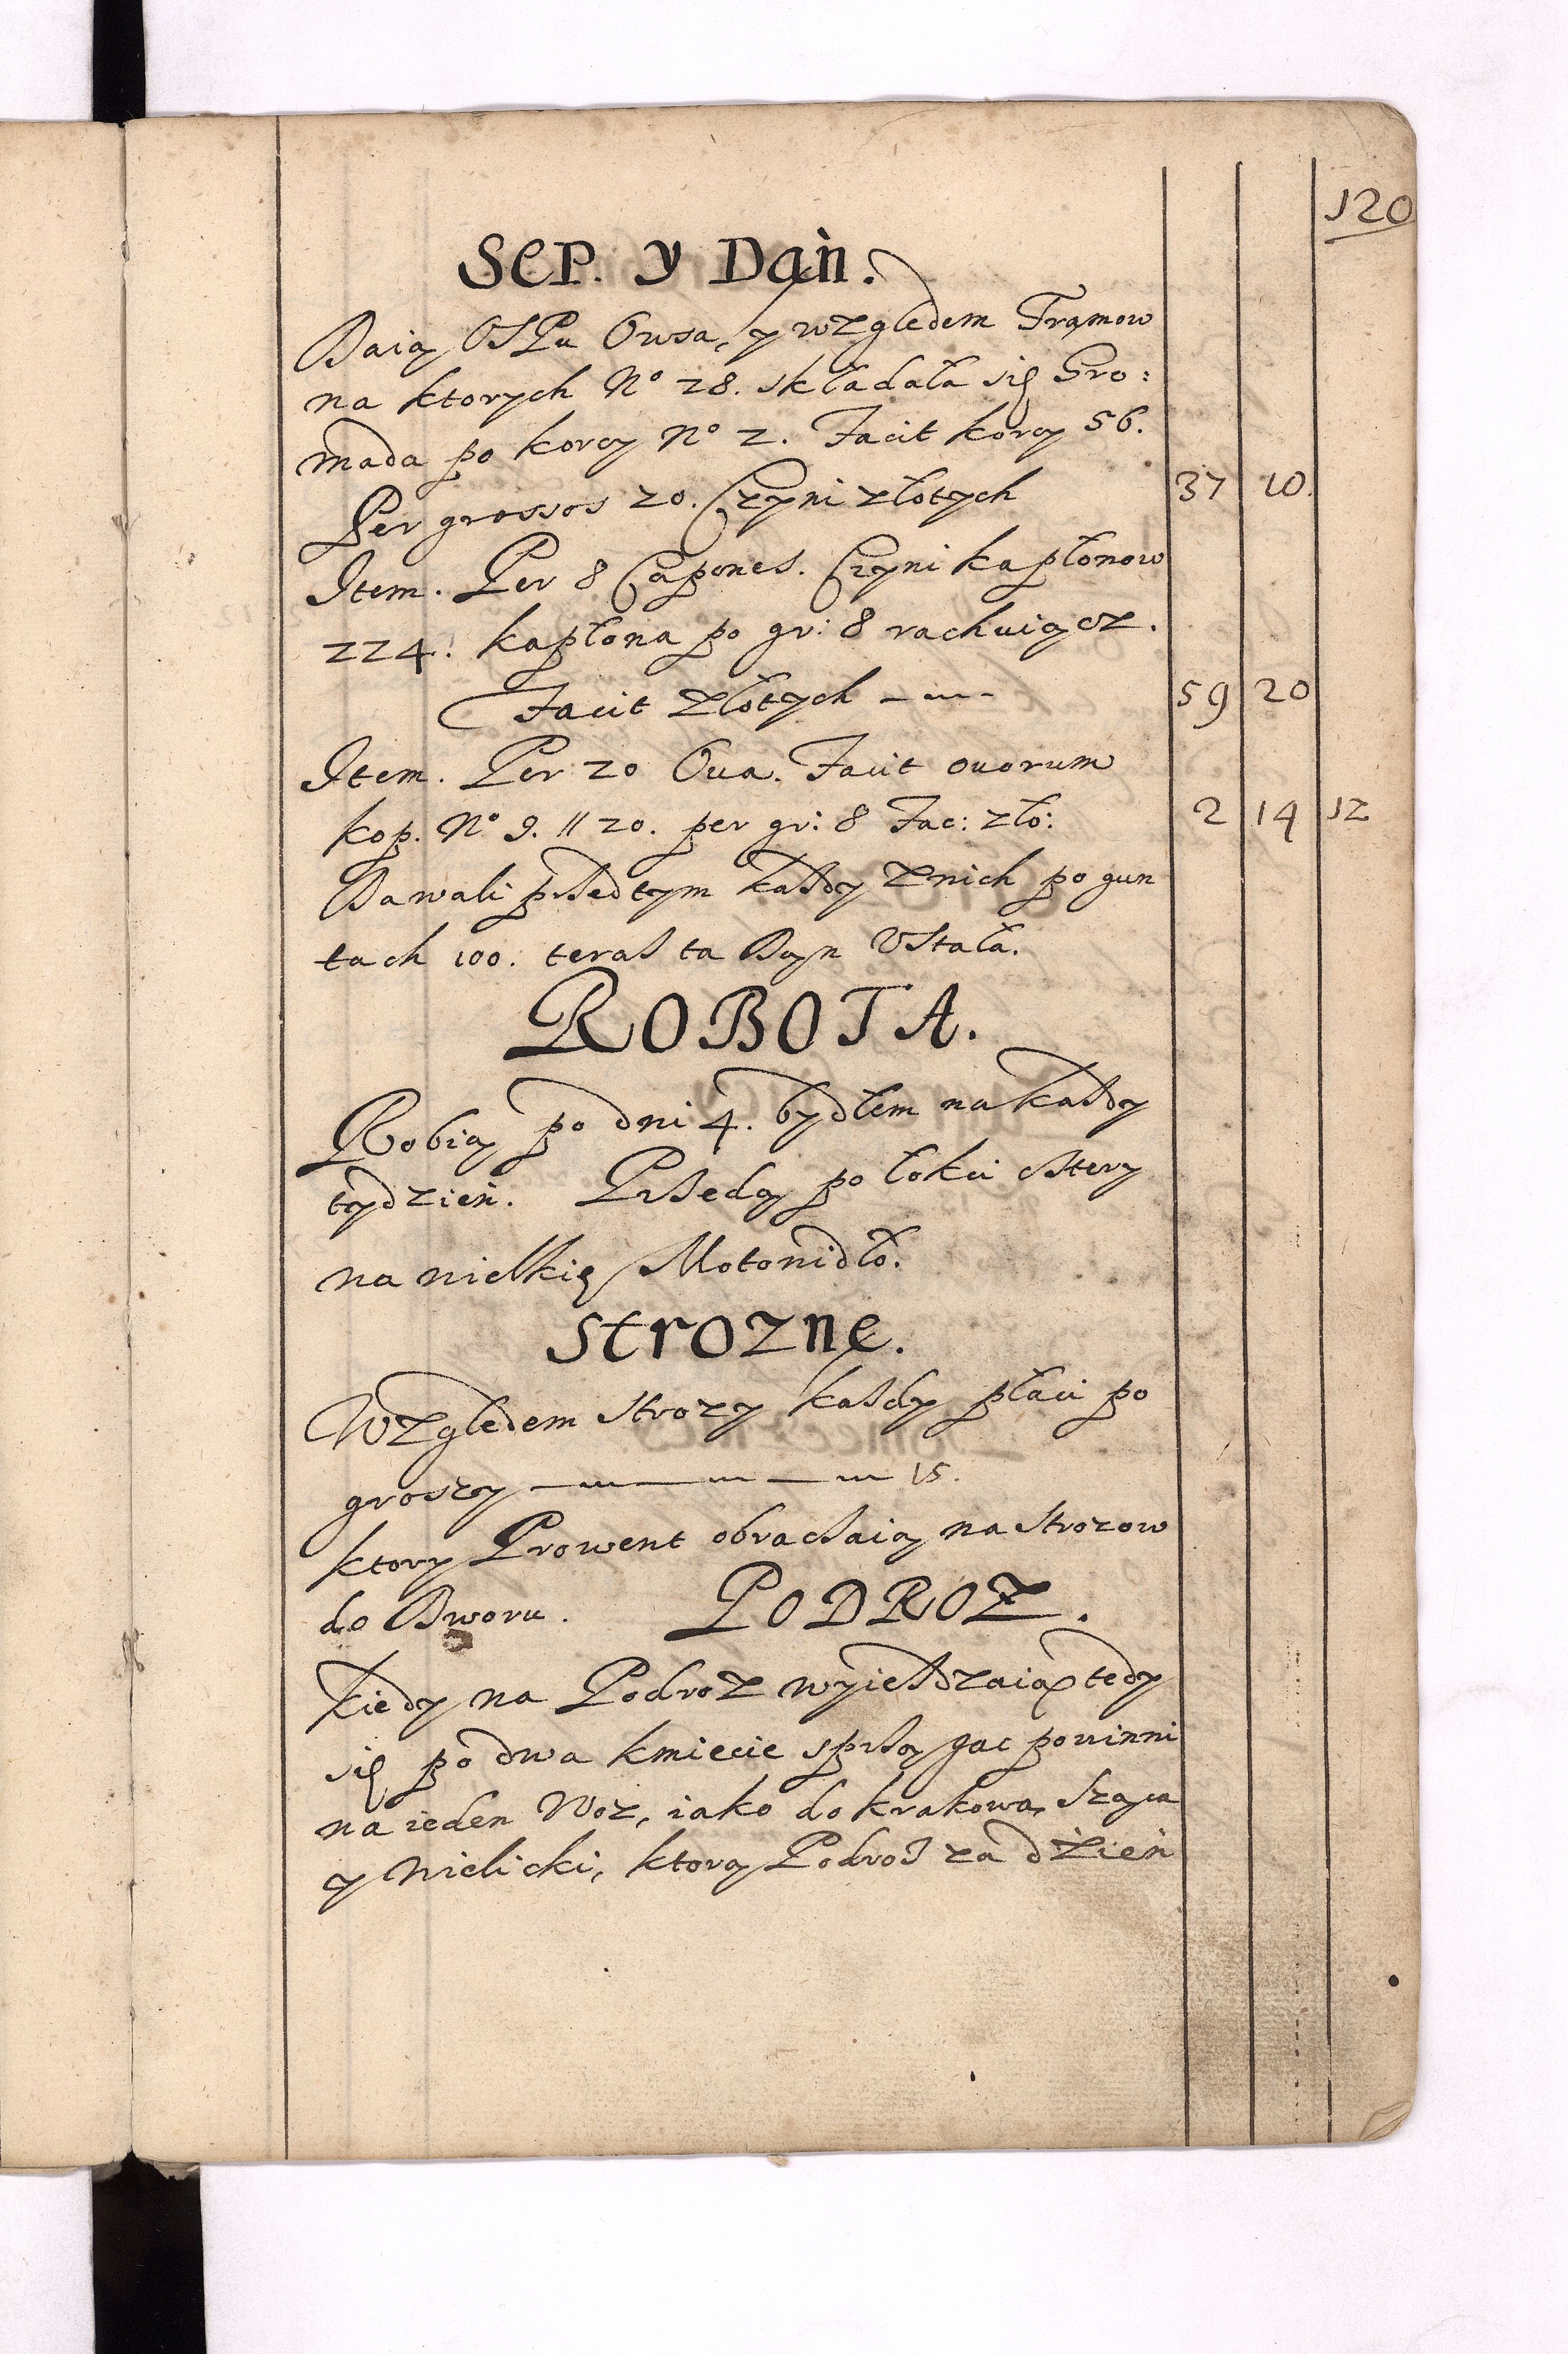 120
Sep. y Dań.
Daią OSPu Owsa, y względem Tramow
na ktorych No 28. składała się Gro:
mada po korcy No 2. Facit korcy 56.
Per grossos 20. Czyni złotych 37 10.
Item. Per 8 Capones. Czyni kapłonow
224. kapłona po gr: 8 rachuiącz.
Facit Złotych 59 20
Item. Per 20 Oua. Facit ouorum
kop. No 9. // 20. per gr: 8 Fac: zło: 2 14 12
Dawali przedtym każdy Znich po gun
tach 100. teras ta Dań Vstała.
ROBOTA.
Robią po dni 4. bydłem na każdy
tydzień. Przedą po łokci cztery
na wielkię Motowidło.
Strozne.
Względem strozy każdy płaci po
groszy 15.
ktory Prowent obracaią na Strozow
do Dworu. PODROZ.
Kiedy na Podroz wyieżdzaią tedy
się po dwa kmiecie sprzągac powinni
na ieden Woz, iako do krakowa, Sząca
y Wielicki, ktorą Podroż za dzień